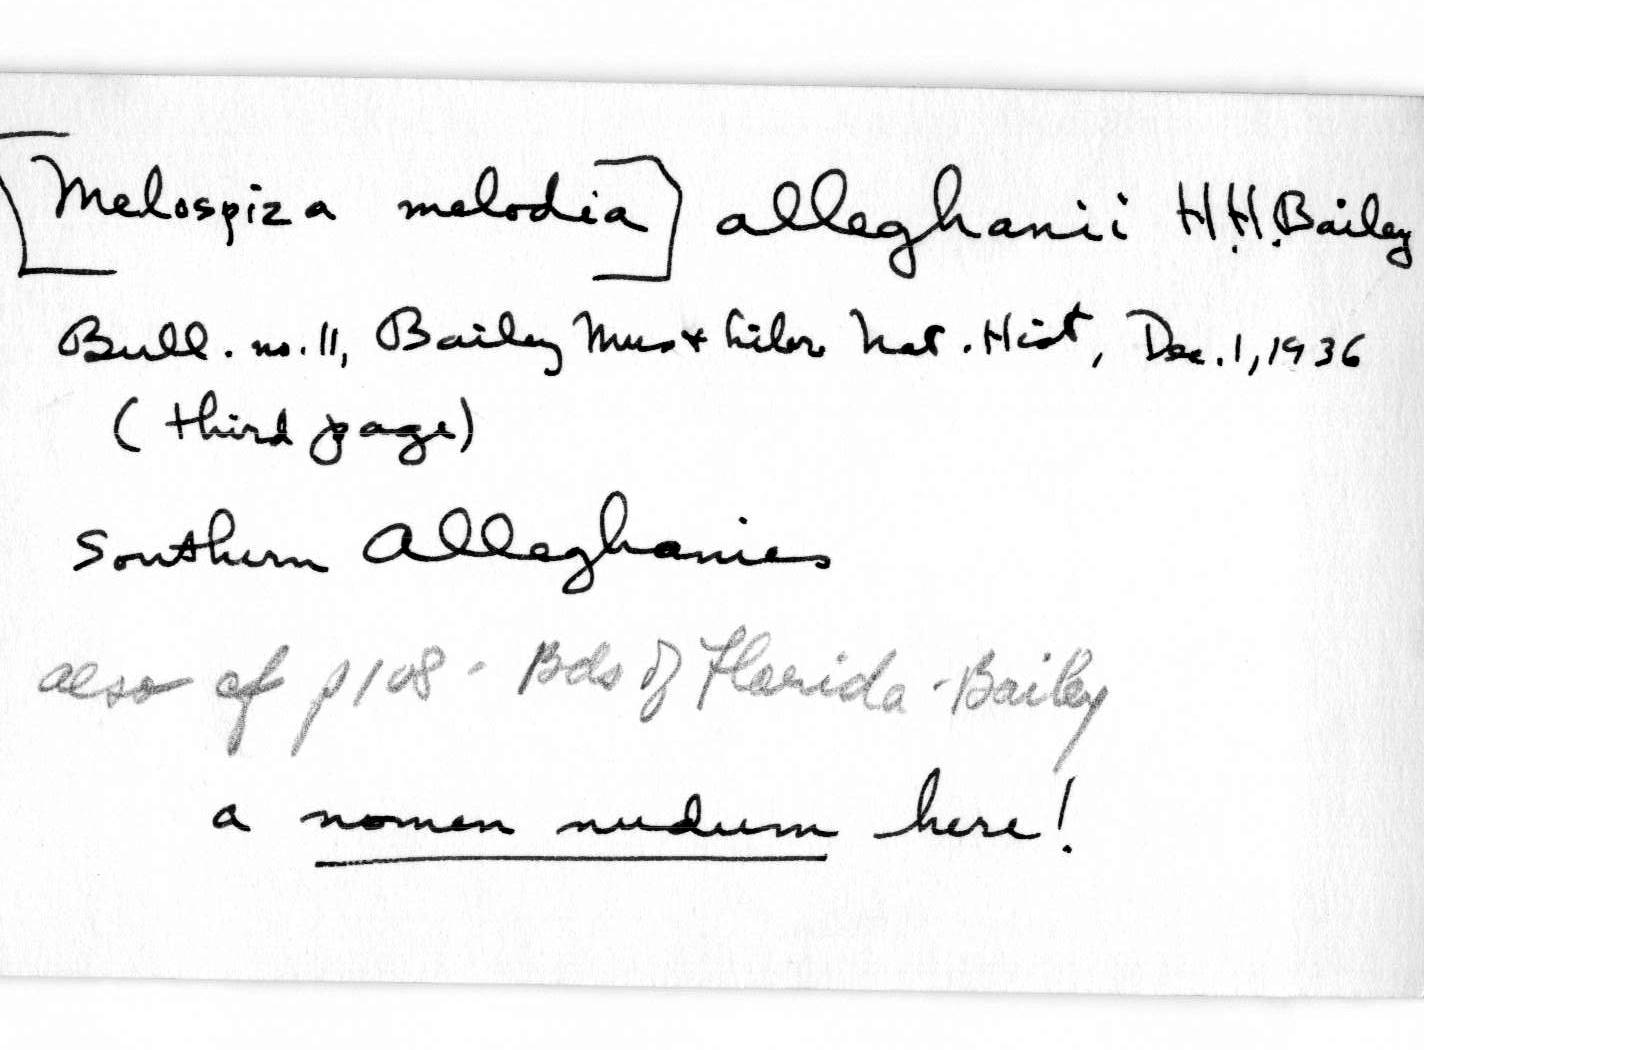 [Melospiza melodia] alleghanii H.H. Bailey
Bull. no. 11, Bailey Mus & Libr. Nat. Hist, Dec. 1, 1936
(third page)
Southern Alleghanies
also cf p108 - Bds of Florida - Bailey
a nomen nudum here!